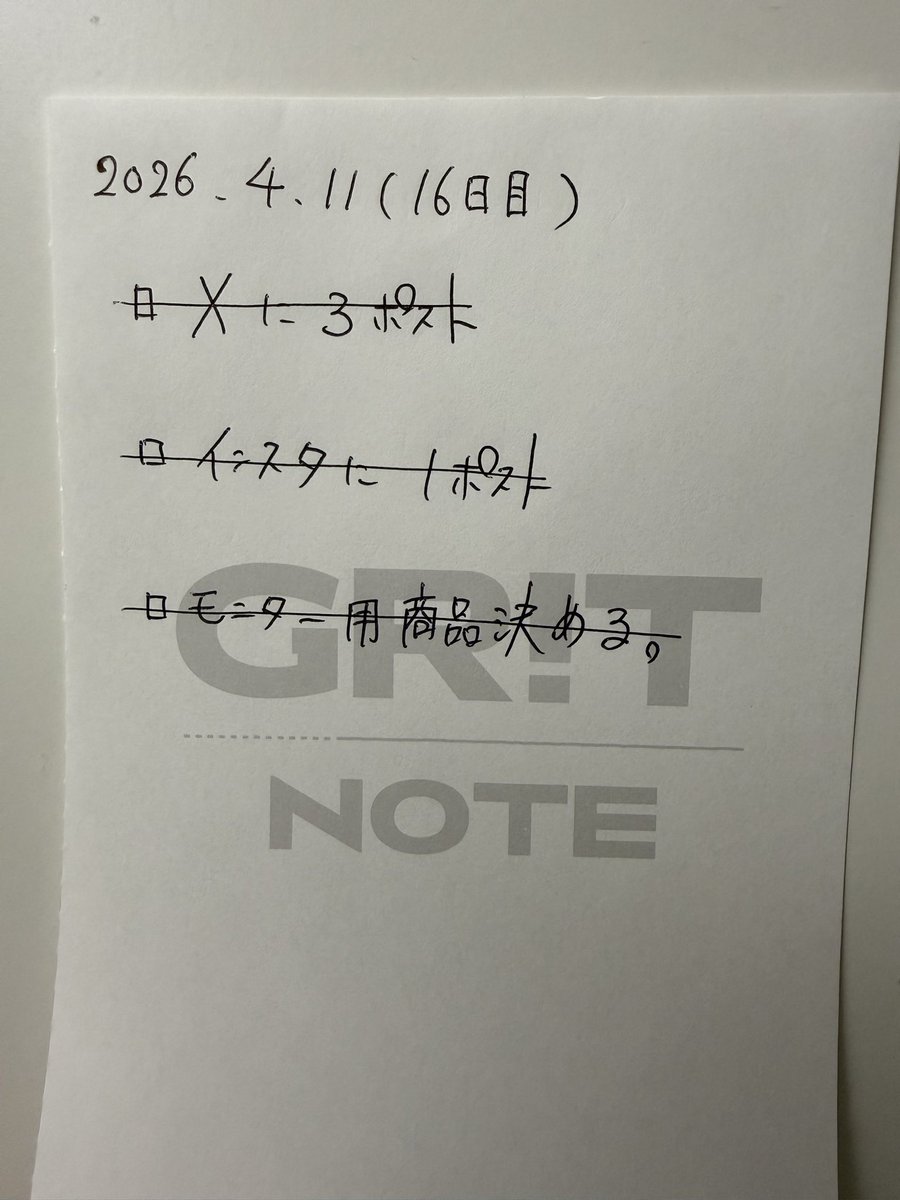 2026.4.11(16日目)
□ Xに3ポスト
□ インスタに1ポスト
□ モニター用商品決める。
GR!T
NOTE